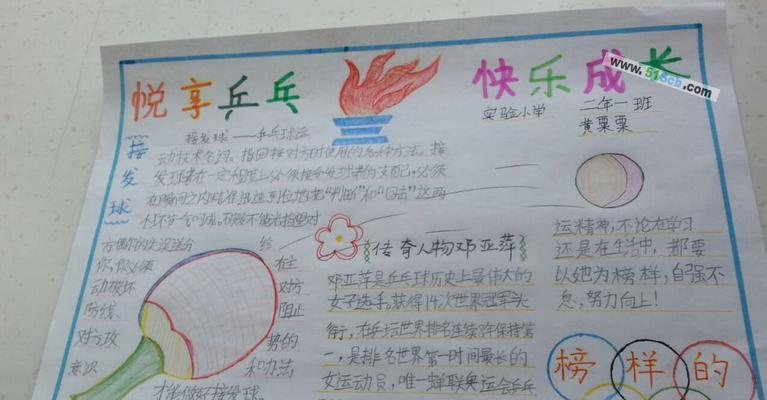 悦享乒乓
快乐成长
www.51Scb.com
实验小学 二年一班
黄栗栗
接发球
接发球——乒乓球运
动技术名词。指回接对方时使用的各种方法。接
发球者在一定程度上必须接受发球者的支配,必须
在瞬间之内
到位地把"判断"和"回击"这两
你,你必须
动破坏
防线、
对方攻
意识
给
在主
对方
阻止
势的
和办法
才能做好接发球。
传奇人物邓亚萍
邓亚萍是乒乓球历史上最伟大的
女子选手。获得14次世界冠军头
衔,在乒坛世界排名连续8年保持第
一,是排名世界第一时间最长的
女运动员,唯一蝉联奥运会乒乓
运精神,不论在学习
还是在生活中,都要
以她为榜样,自强不
息,努力向上!
榜样的